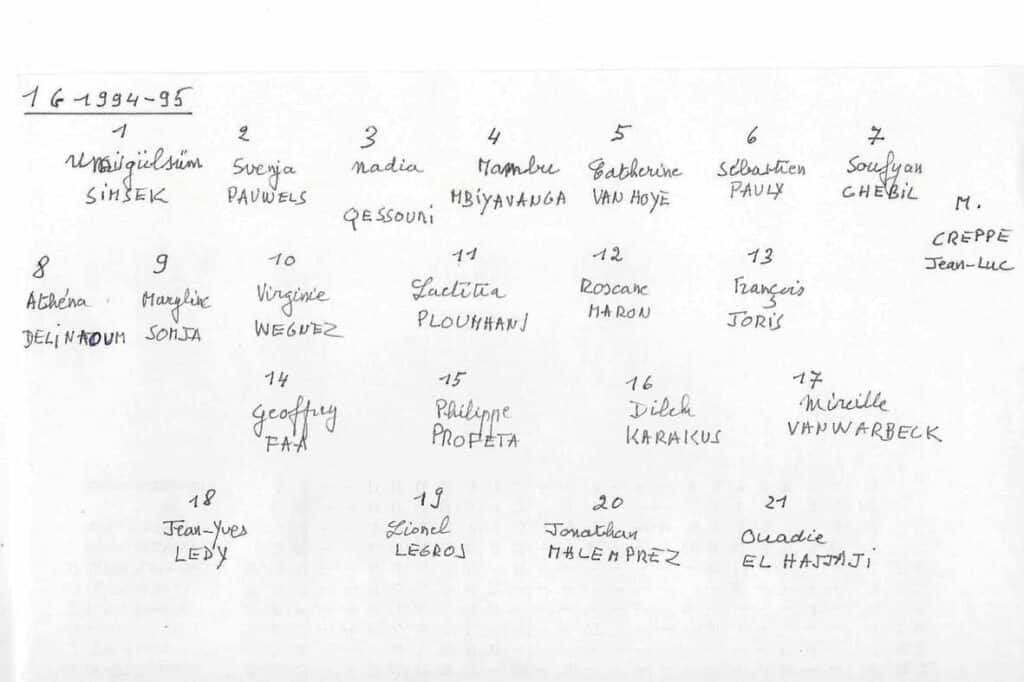 1 G 1994-95
1 2 3 4 5 6 7
Svenja nadia Mambu Catherine Sébastien Soufyan
SIMSEK PAUWELS QESSOURI MBIYAVANGA VAN HOYE PAULY GHEBIL
M.
CREPPE
Jean-Luc
8 9 10 11 12 13
Athéna Maryline Virginie Laetitia Roscane François
DELINAOUM SOMJA WEGNEZ PLOUMHANS MARON JORIS
14 15 16 17
Geoffrey Philippe Dilek Mireille
FAA PROFETA KARAKUS VANWARBECK
18 19 20 21
Jean-Yves Lionel Jonathan Ouadie
LEDY LEGROS MALEMPREZ EL HAJJAJI